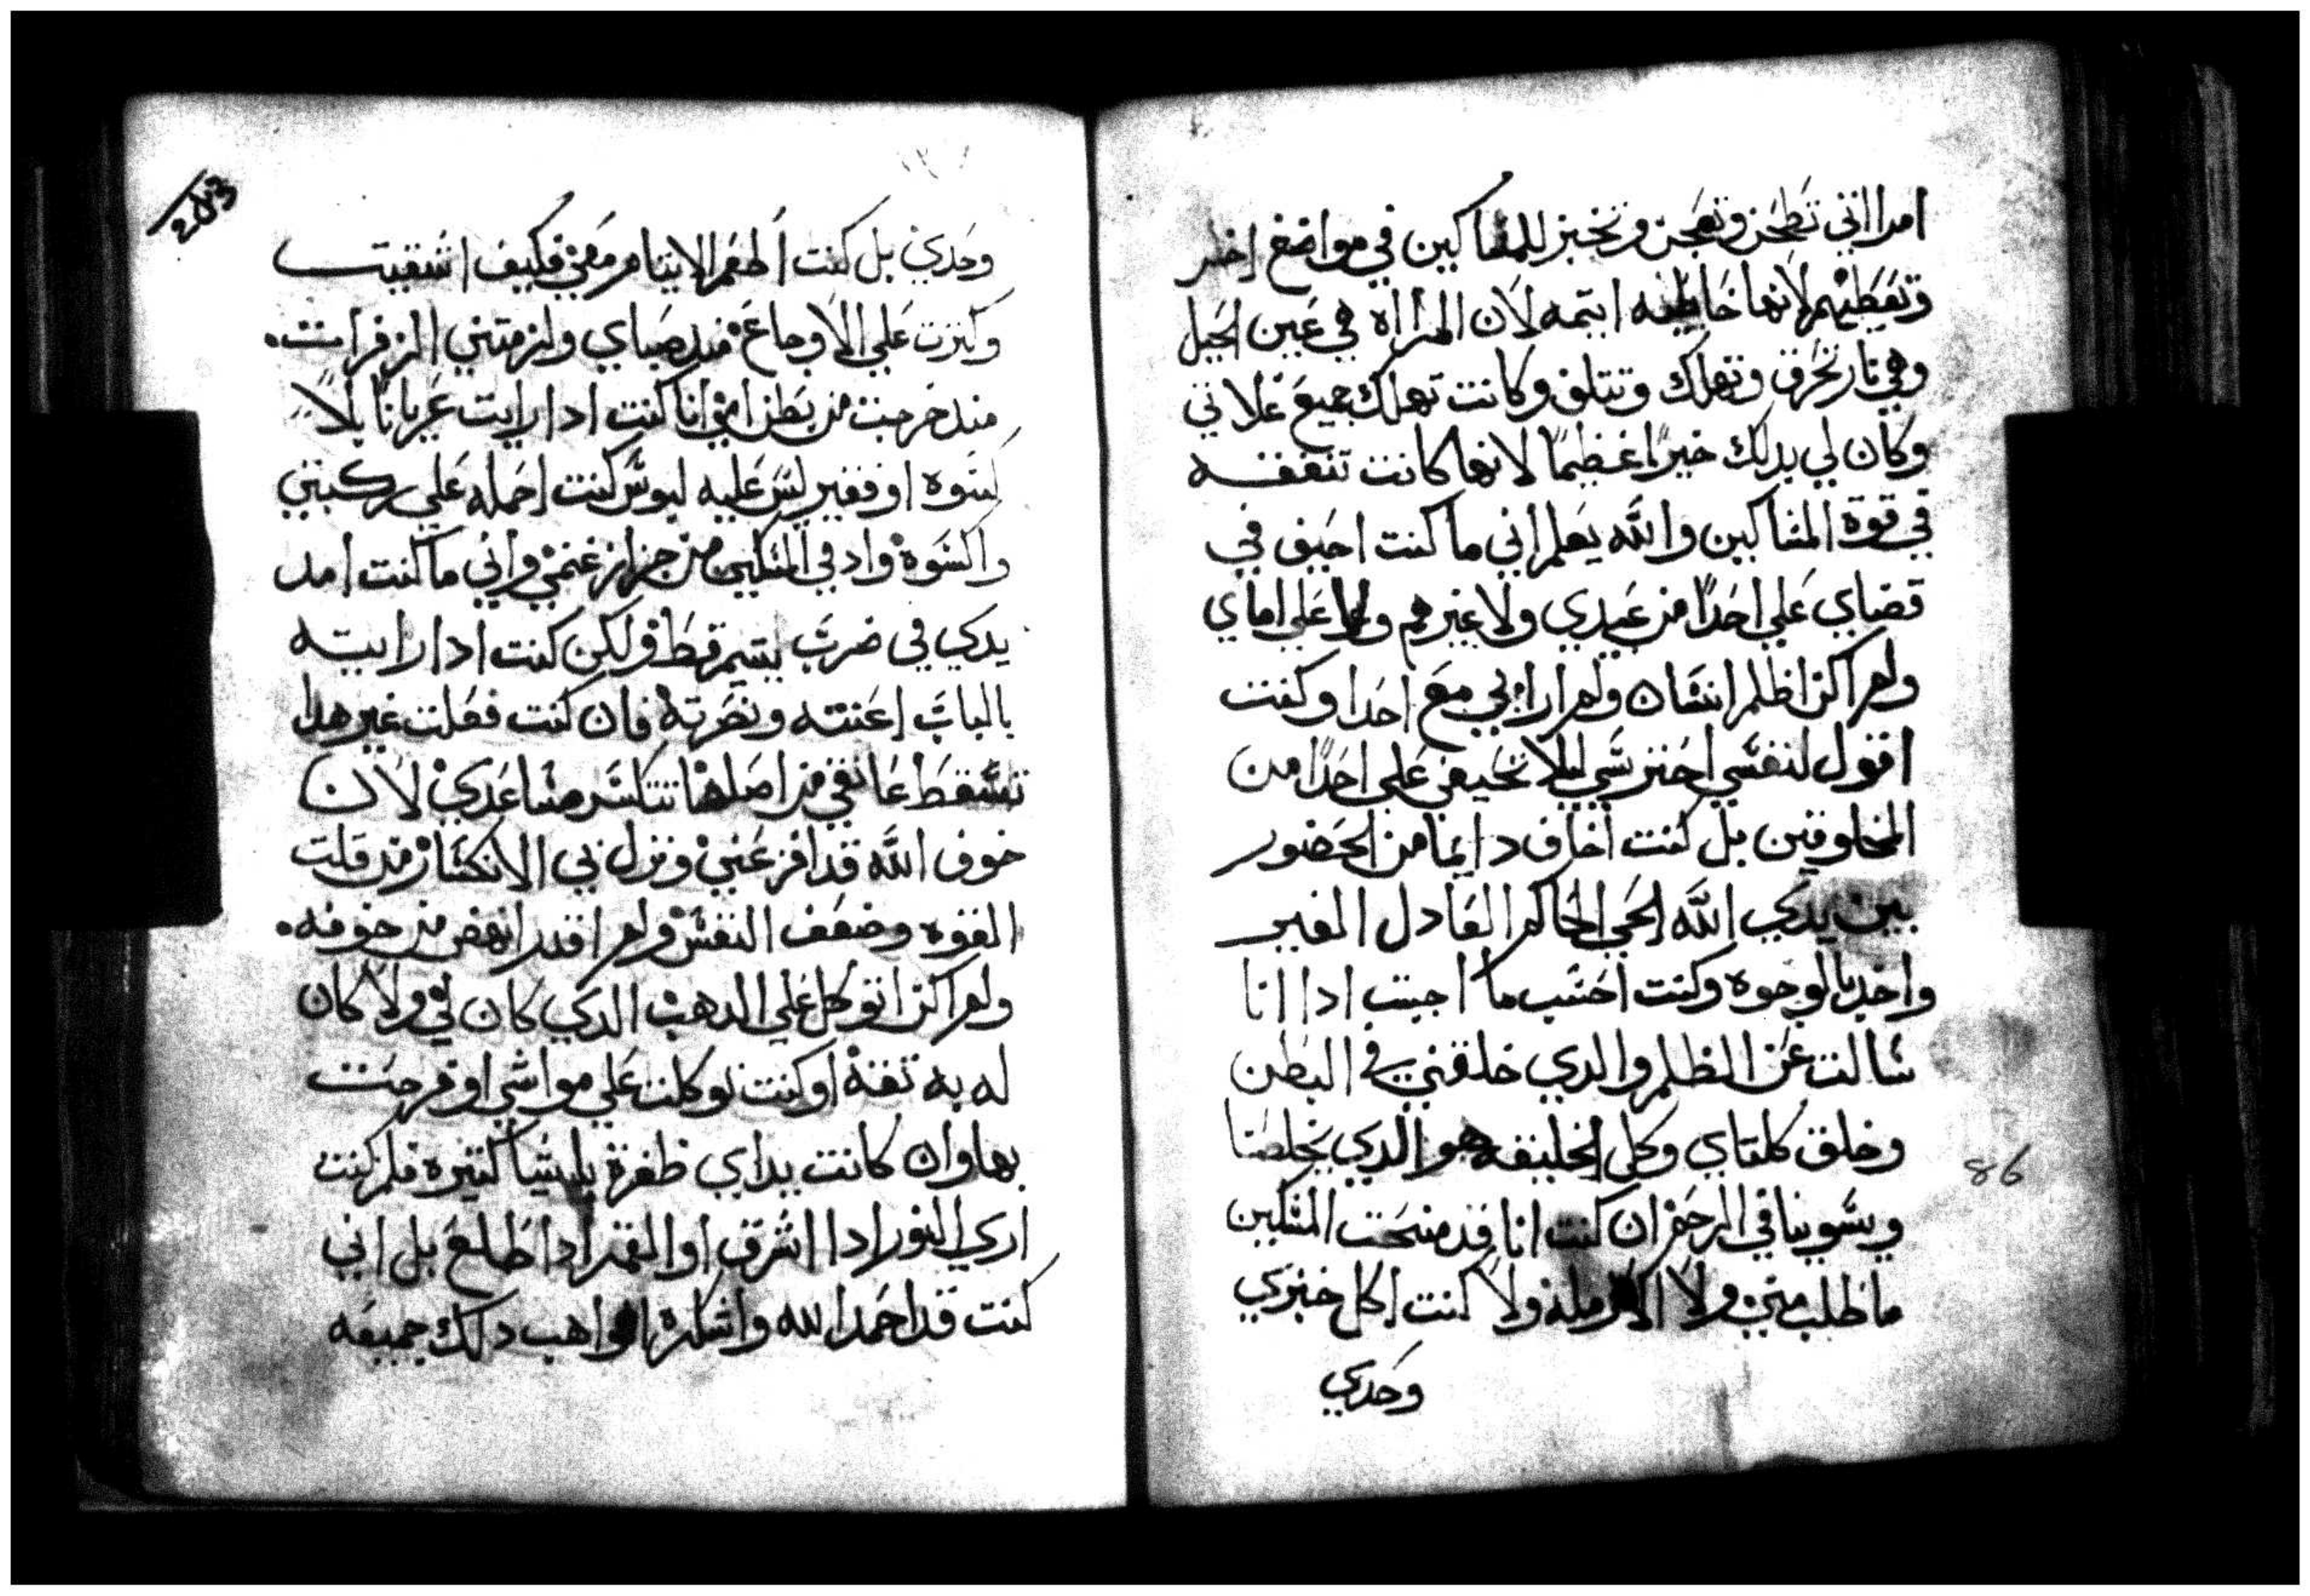 امرااتي تطحن وتعجن وتخبز للمساكين في مواضع اخر
وتعطيهم لانها خاطيه اتيمه لان المراه هي عين الجيل
وهي نار تحرق وتهلك وتتلف وكانت تهلك جميع غلاتي
وكان لي بدلك خيرًا عظيمًا لانها كانت تنفقه
في قوة المساكين والله يعلم اني ما كنت احيف في
قضاي علي احدًا من عبيدي ولا غيرهم ولا علي اماي
ولم اكن اظلم انسان ولم ارابي مع احدا وكنت
اقول لنفسي احترسي ليلا تحيفي علي احدًا من
المخلوقين بل كنت اخاف دايما من الحضور
بين يدي الله الحي الحاكم العادل الغير
واخد بالوجوه وكنت احسب ما اجيب ادا انا
سالت عن الظلم والدي خلقني في البطن
وخلق كلتاي وكل الخليفه هو الدي يخلصنا
ويسوينا في الرحم ان كنت انا قد منحت المسكين
ما طلب مني ولا الارمله ولا كنت اكل خبزي
وحدي
86
203
وحدي بل كنت اطعم الايتام معي فكيف اشقيت
وكترت علي الاوجاع مند صباي ولزمتني الزفرات.
مند خرجت من بطن امي انا كنت ادا رايت عريانًا بلا
كسوه او فقير ليس عليه لبوس كنت احمله علي ركبتي
واكسوه وادفي المسكين من جزاز غنمي واني ما كنت امد
يدي في ضرب يتيم قط ولكن كنت ادا رايته
بالباب اعنته ونصرته فان كنت فعلت غير هدا
تسقط عاتقي من اصلها تتكسر مساعدي لان
خوف الله قد افزعني ونزل بي الانكسار من قلت
القوه وضعف النفس ولم اقدر انهض من خوفه.
ولم اكن اتوكل علي الدهب الدي كان لي ولا كان
له به تقة او كنت توكلت علي مواشي او فرحت
بها وان كانت يداي ظفرة باشيا كتيره فلم كنت
اري النور ادا اشرق او القمر ادا طلع بل اني
كنت قد احمد الله واشكره واهب دلك جميعه